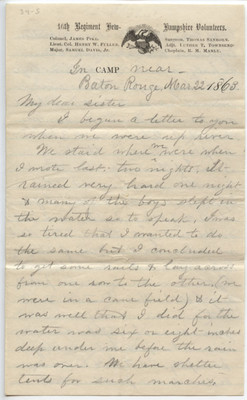 16th Regiment New-Hampshire Volunteers.
Colonel, JAMES PIKE.
Lieut. Col. HENRY W. FULLER.
Major, SAMUEL DAVIS, Jr.
Surgeon, THOMAS SANBORN.
Adj. LUTHER T. TOWNSEND
Chaplain, R. M. MANLY.
In CAMP near
Baton Rouge, Mar. 22 1863.
My dear sister
I begun a letter to you
when we were up river
We staid where we were when
I wrote last, two nights, It
rained very hard one night
& many of the boys slept on
the water so to speak. I was
so tired that I wanted to do
the same but I concluded
to get some rails & lay across
from one row to the other (we
were in a cane field) & it
was well that I did for the
water was six or eight inches
deep under me before the rain
was over. We have shelter
tents for such marches